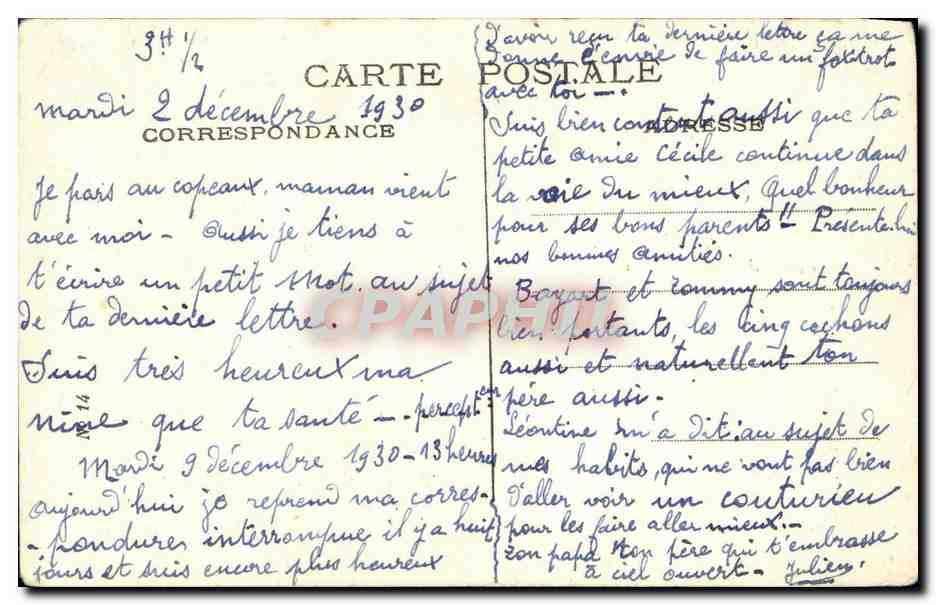 3H 1/2
CARTE POSTALE
mardi 2 décembre 1930
CORRESPONDANCE
Je pars au copeaux, maman vient
avec moi - aussi je tiens à
t'écrire un petit mot au sujet
de ta dernière lettre.
Suis très heureux ma
nine que ta santé -
No 14
Mardi 9 décembre 1930 - 13 heures
aujourd'hui je reprend ma corres-
-pondures interrompue il y a huit
jours et suis encore plus heureux
D'avoir reçu ta dernière lettre ça me
donne d'envie de faire un foxtrot
avec toi -.
ADRESSE
Suis bien content aussi que ta
petite amie Cécile continue dans
la voie du mieux, Quel bonheur
pour ses bons parents !! Présente-lui
nos bonnes amitiés.
Bayart et Tommy sont toujours
bien portants, les cinq cochons
aussi et naturellent ton
père aussi.
Léontine m'a dit : au sujet de
mes habits, qui ne vont pas bien
d'aller voir un couturieu
pour les faire aller mieux. -
Ton papa Mon père qui t'embrasse
à ciel ouvert - Julien.
CPAPHIL